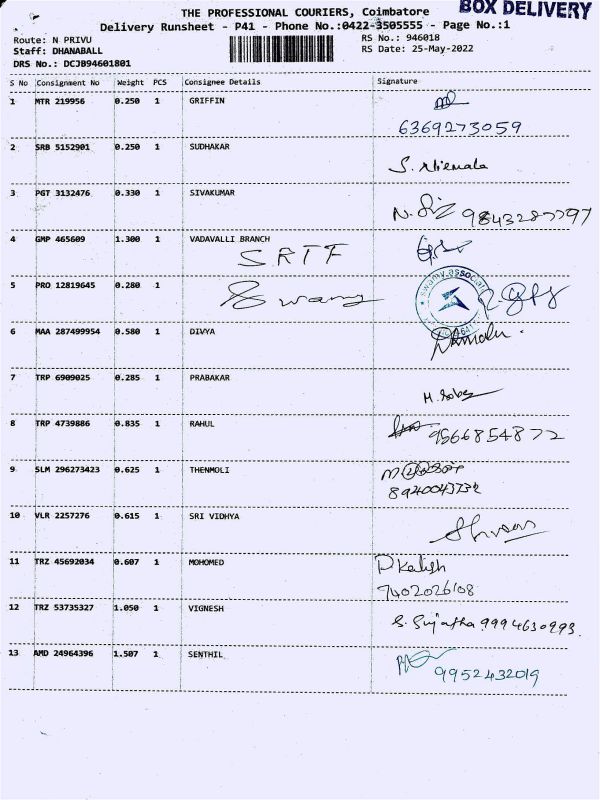 BOX DELIVERY
THE PROFESSIONAL COURIERS, Coimbatore
Delivery Runsheet - P41 - Phone No.:0422-3505555 - Page No.:1
Route: N PRIVU RS No.: 946018
Staff: DHANABALL RS Date: 25-May-2022
DRS No.: DCJB94601801
S No Consignment No Weight PCS Consignee Details Signature
1 MTR 219956 0.250 1 GRIFFIN
6369273059
2 SRB 5152901 0.250 1 SUDHAKAR
S. Nirmala
3 PGT 3132476 0.330 1 SIVAKUMAR
9843287797
4 GMP 465609 1.300 1 VADAVALLI BRANCH
SRTF
5 PRO 12819645 0.280 1 Swamy swamy associat
6 MAA 287499954 0.580 1 DIVYA
7 TRP 6909025 0.285 1 PRABAKAR
8 TRP 4739886 0.835 1 RAHUL
9566854872
9 SLM 296273423 0.625 1 THENMOLI
10 VLR 2257276 0.615 1 SRI VIDHYA
11 TRZ 45692034 0.607 1 MOHOMED
7402026108
12 TRZ 53735327 1.050 1 VIGNESH
S. Sujatha 9994630993
13 AMD 24964396 1.507 1 SENTHIL
9952432019